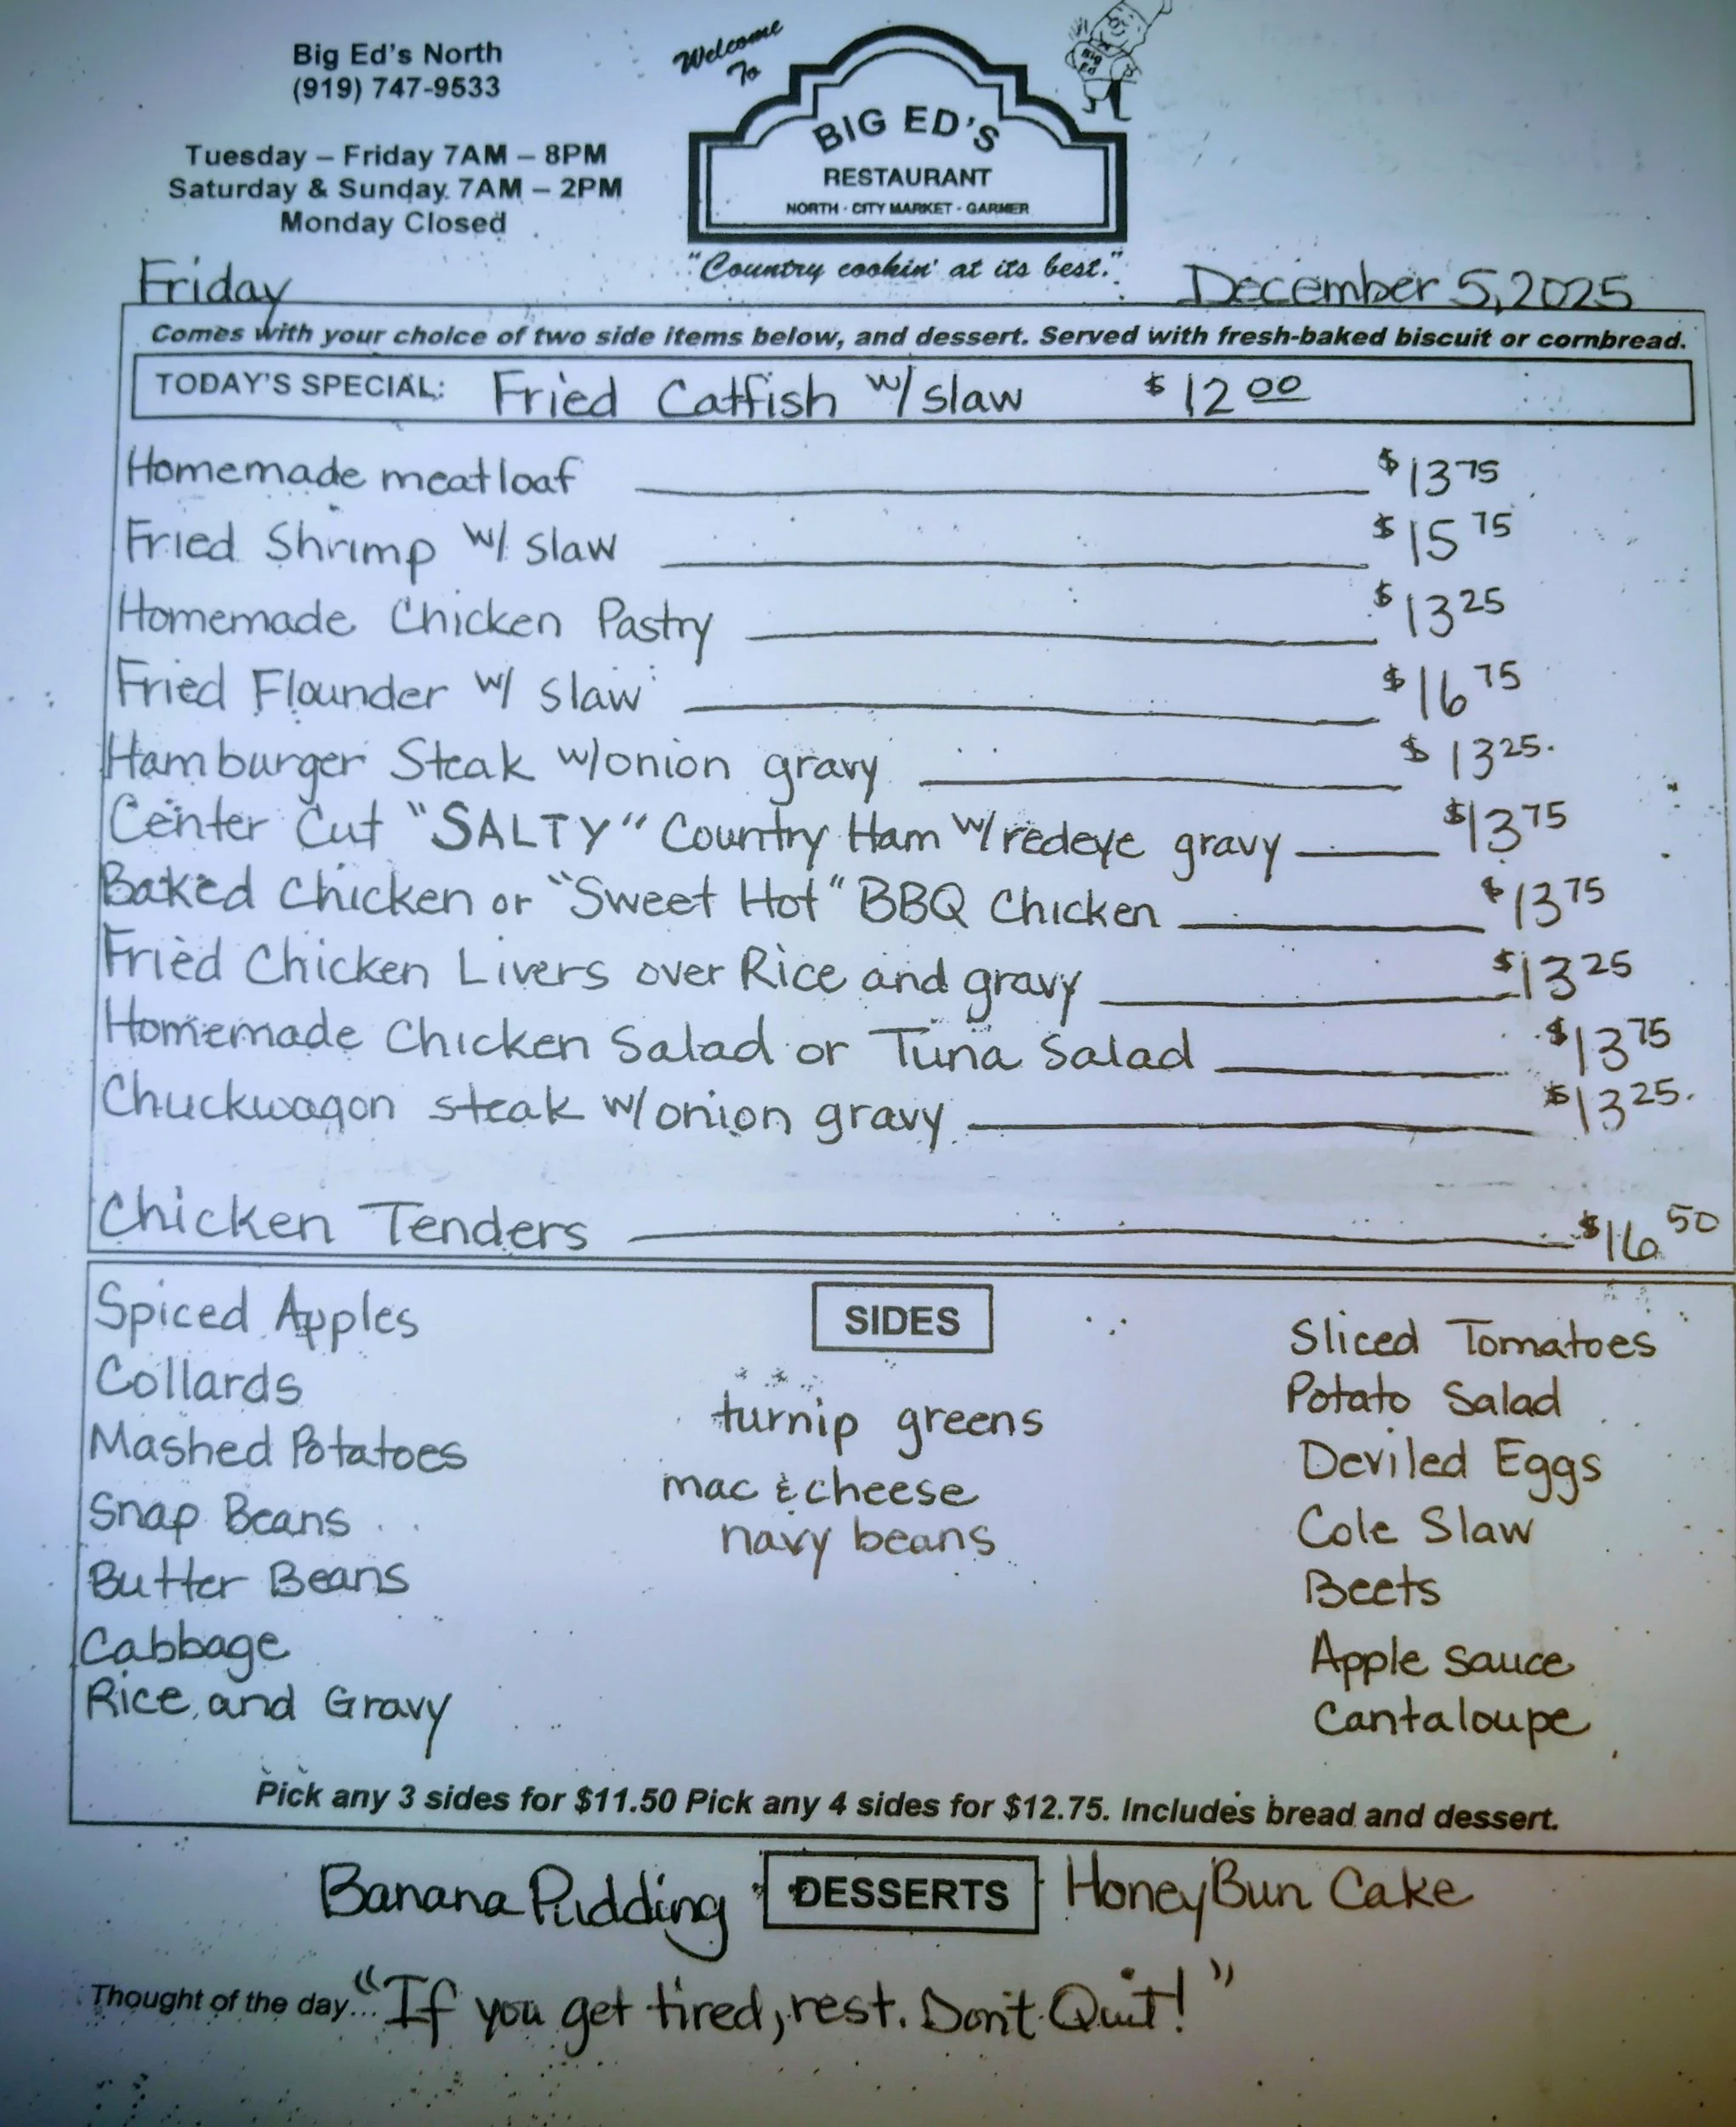 Big Ed's North
(919) 747-9533
Tuesday – Friday 7AM – 8PM
Saturday & Sunday 7AM – 2PM
Monday Closed
Welcome
To
BIG ED'S
RESTAURANT
NORTH · CITY MARKET · GARNER
"Country cookin' at its best."
Big
Ed
Friday December 5, 2025
Comes with your choice of two side items below, and dessert. Served with fresh-baked biscuit or cornbread.
TODAY'S SPECIAL: Fried Catfish w/ slaw $12 00
Homemade meatloaf $13 75
Fried Shrimp w/ slaw $15 75
Homemade Chicken Pastry $13 25
Fried Flounder w/ slaw $16 75
Hamburger Steak w/onion gravy $13 25
Center Cut "SALTY" Country Ham w/redeye gravy $13 75
Baked Chicken or "Sweet Hot" BBQ Chicken $13 75
Fried Chicken Livers over Rice and gravy $13 25
Homemade Chicken Salad or Tuna Salad $13 75
Chuckwagon steak w/onion gravy $13 25
Chicken Tenders $16 50
SIDES
Spiced Apples
Collards
Mashed Potatoes
Snap Beans
Butter Beans
Cabbage
Rice and Gravy
turnip greens
mac & cheese
navy beans
Sliced Tomatoes
Potato Salad
Deviled Eggs
Cole Slaw
Beets
Apple Sauce
Cantaloupe
Pick any 3 sides for $11.50 Pick any 4 sides for $12.75. Includes bread and dessert.
Banana Pudding DESSERTS Honey Bun Cake
Thought of the day... "If you get tired, rest. Don't Quit!"